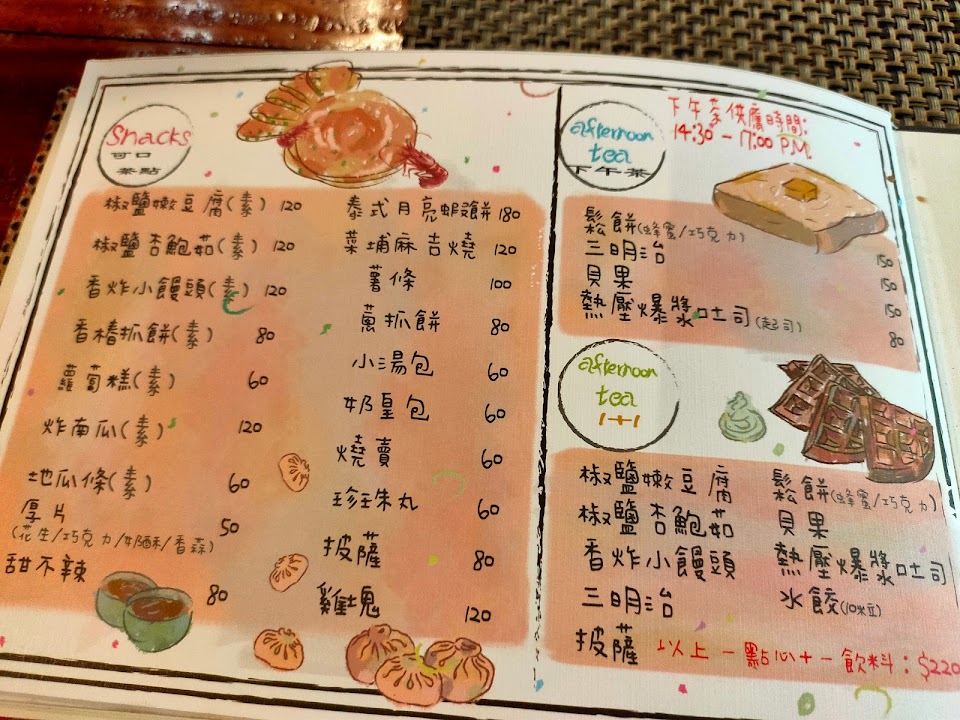 Snacks
可口
茶點
椒鹽嫩豆腐(素) 120
椒鹽杏鮑茹(素) 120
香炸小饅頭(素) 120
香椿抓餅(素) 80
蘿蔔糕(素) 60
炸南瓜(素) 120
地瓜條(素) 60
厚片 50
(花生/巧克力/奶酥/香蒜)
甜不辣 80
泰式月亮蝦餅 180
菜埔麻吉燒 120
薯條 100
蔥抓餅 80
小湯包 60
奶皇包 60
燒賣 60
珍珠丸 60
披薩 80
雞塊 120
afternoon
tea
下午茶
下午茶供應時間:
14:30-17:00 P.M.
鬆餅(蜂蜜/巧克力) 150
三明治 150
貝果 150
熱壓爆漿吐司(起司) 80
afternoon
tea
1+1
椒鹽嫩豆腐
椒鹽杏鮑茹
香炸小饅頭
三明治
披薩
鬆餅(蜂蜜/巧克力)
貝果
熱壓爆漿吐司
水餃(10粒)
以上一點心+一飲料:$220